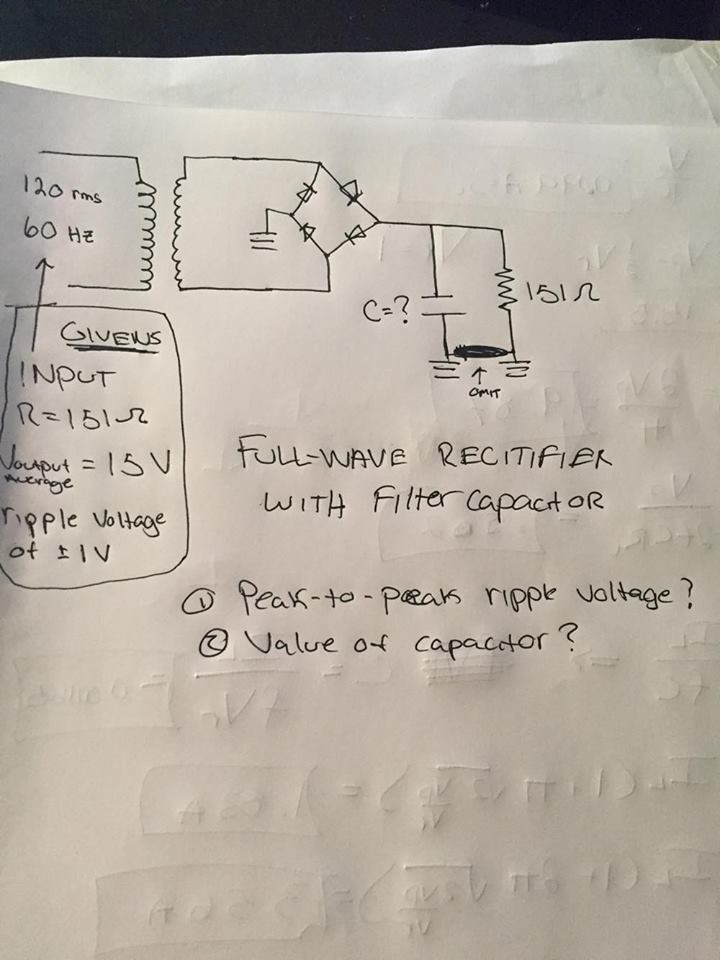 120 rms
60 Hz
C=?
151Ω
↑
OMIT
GIVENS
INPUT
R=151Ω
Voutput = 15V
Average
ripple voltage
of ±1V
FULL-WAVE RECITIFIER
WITH Filter capactor
① Peak-to-peak ripple voltage?
② Value of capacitor?